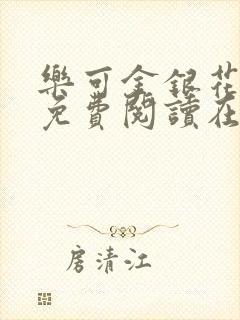 樂可金銀花
免費閱讀在
房清江